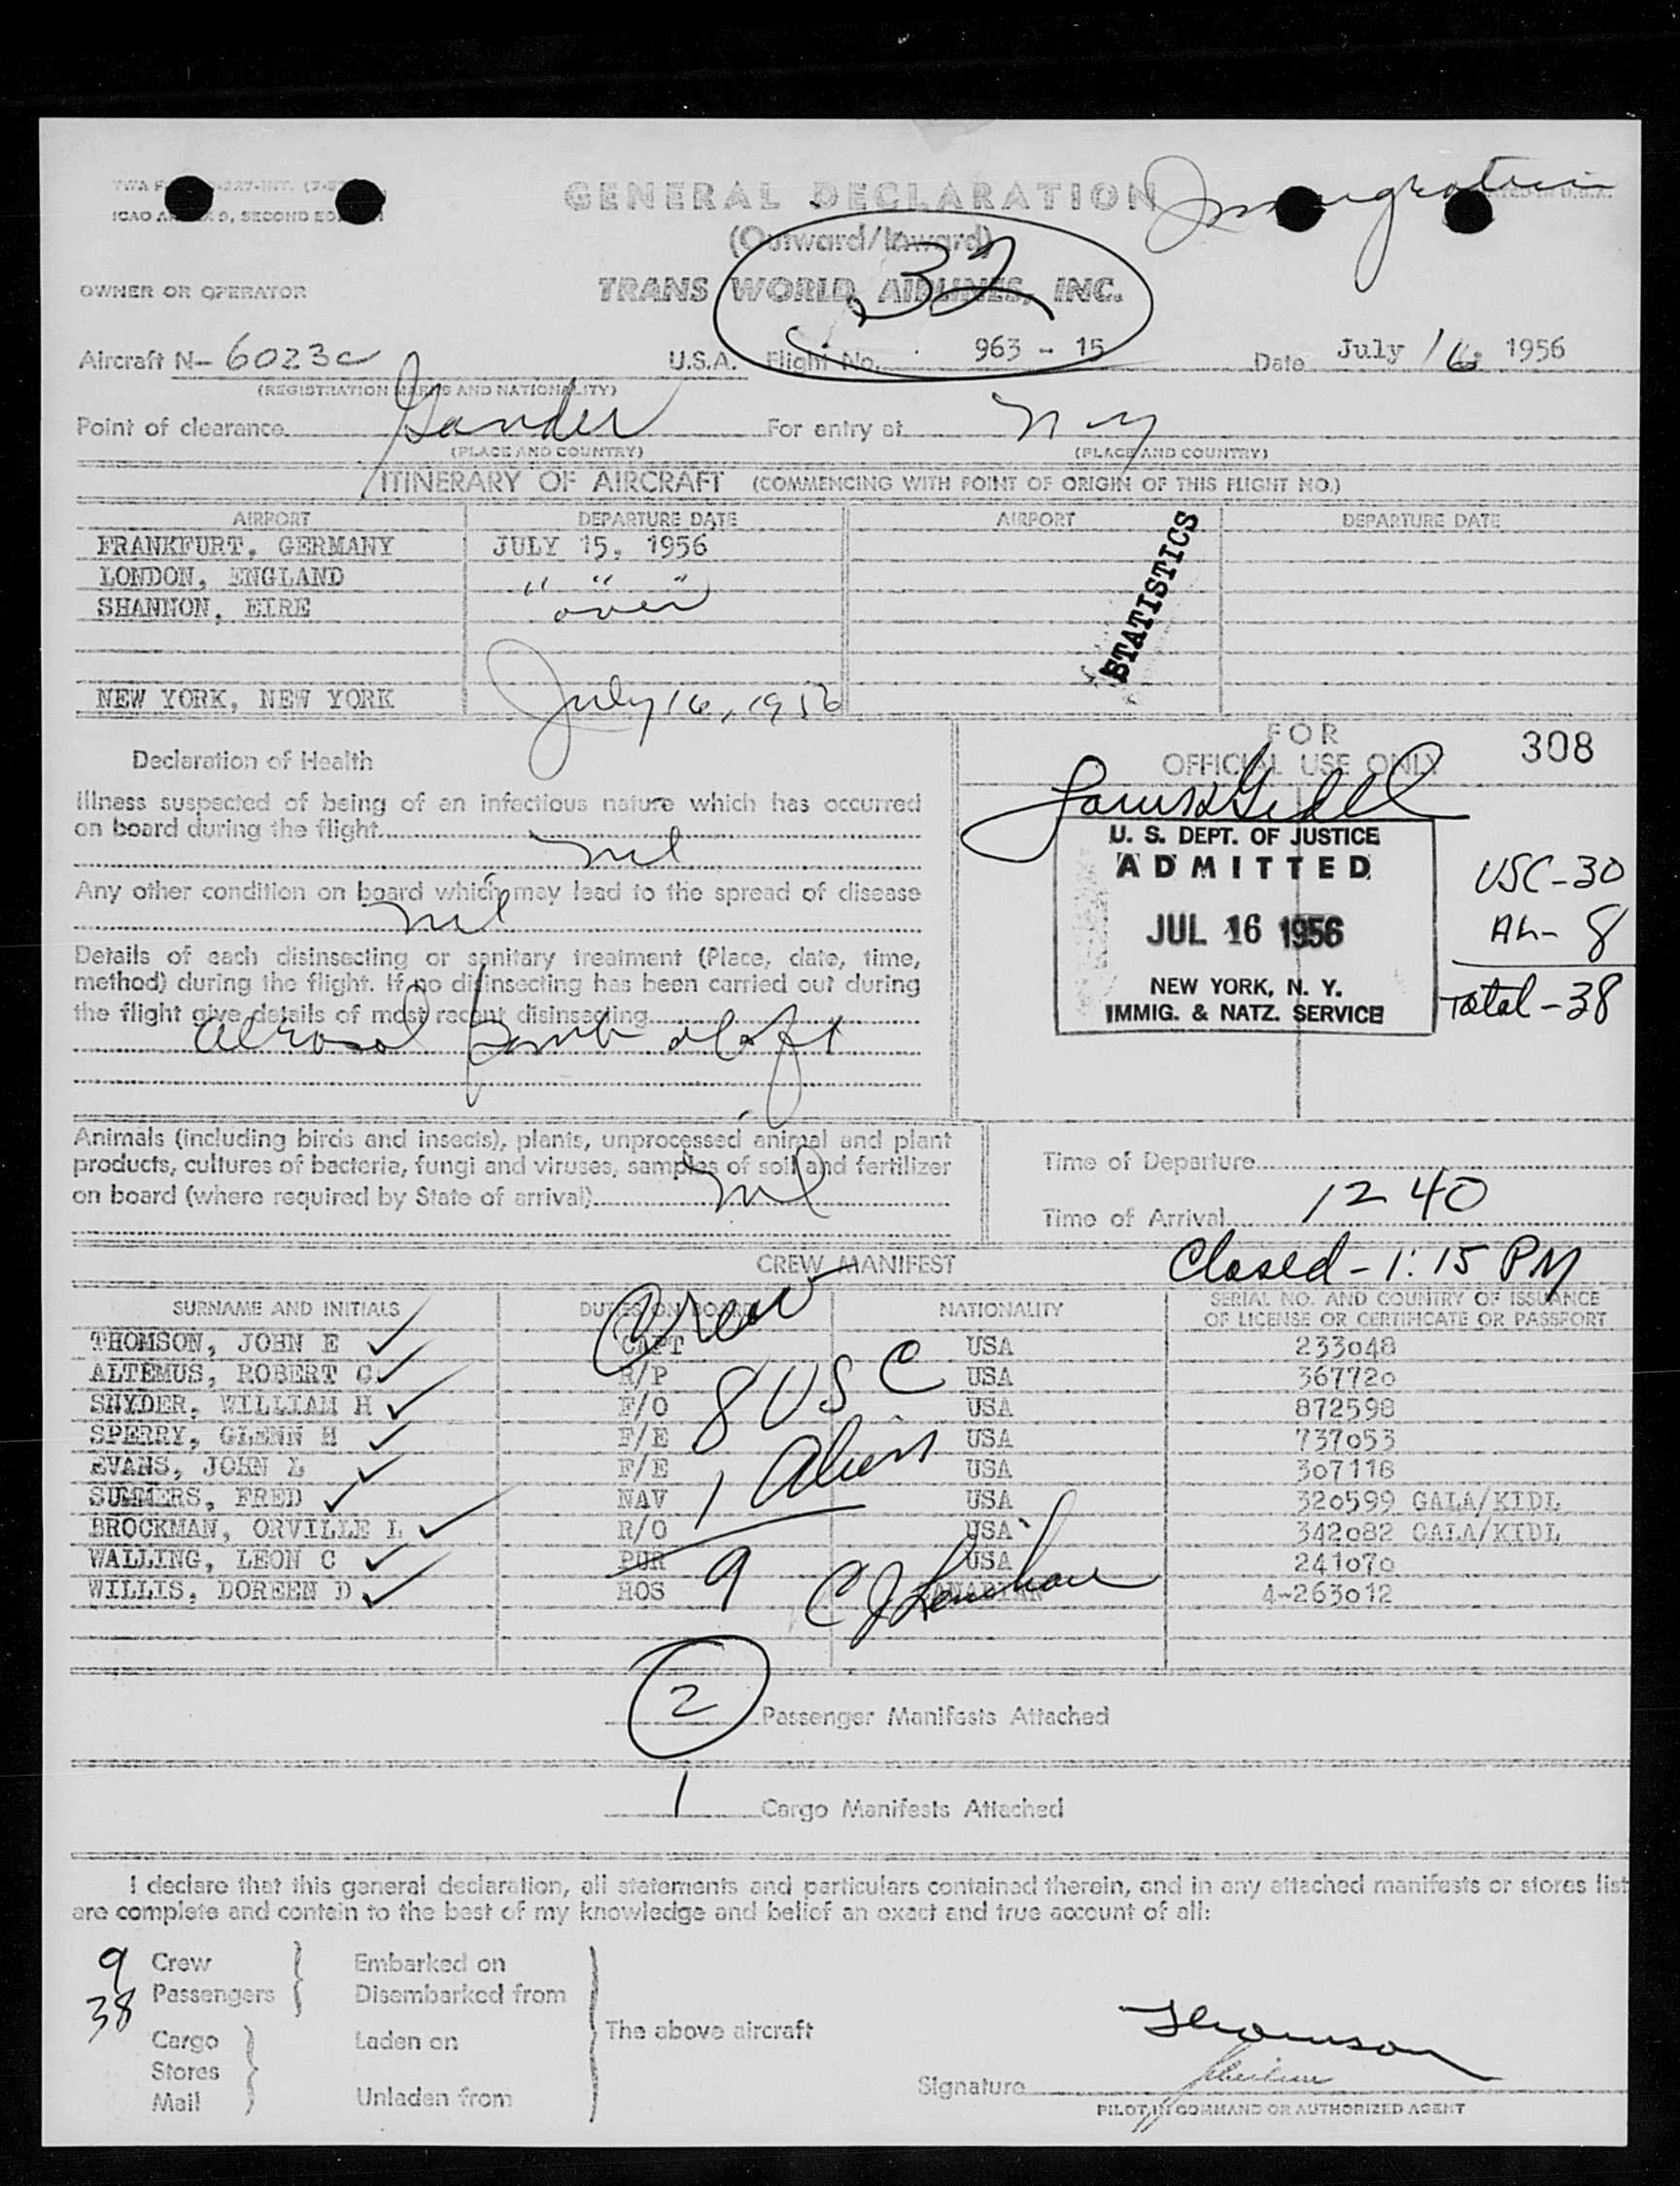 GENERAL DECLARATION
Immigration
ICAO
9, SECOND
(Outward/Inward)
32
OWNER OR OPERATOR TRANS WORLD AIRLINES, INC.
Aircraft N- 6023c U.S.A. Flight No. 963 - 15 Date July 16, 1956
(REGISTRATION MARKS AND NATIONALITY)
Point of clearance Gander For entry at N Y
(PLACE AND COUNTRY) (PLACE AND COUNTRY)
ITINERARY OF AIRCRAFT (COMMENCING WITH POINT OF ORIGIN OF THIS FLIGHT NO.)
AIRPORT DEPARTURE DATE AIRPORT DEPARTURE DATE
FRANKFURT, GERMANY JULY 15, 1956
LONDON, ENGLAND " " "
SHANNON, EIRE over
STATISTICS
NEW YORK, NEW YORK July 16, 1956
FOR
OFFICIAL USE ONLY
308
Declaration of Health
Illness suspected of being of an infectious nature which has occurred
on board during the flight
nil
Any other condition on board which may lead to the spread of disease
nil
Details of each disinsecting or sanitary treatment (Place, date, time,
method) during the flight. If no disinsecting has been carried out during
the flight give details of most recent disinsecting
aerosol bomb aloft
U. S. DEPT. OF JUSTICE
ADMITTED
JUL 16 1956
NEW YORK, N. Y.
IMMIG. & NATZ. SERVICE
USC-30
Al- 8
Total-38
Animals (including birds and insects), plants, unprocessed animal and plant
products, cultures of bacteria, fungi and viruses, samples of soil and fertilizer
on board (where required by State of arrival) nil
Time of Departure
Time of Arrival 12 40
CREW MANIFEST
Closed - 1:15 PM
SURNAME AND INITIALS DUTIES ON BOARD NATIONALITY SERIAL NO. AND COUNTRY OF ISSUANCE
OF LICENSE OR CERTIFICATE OR PASSPORT
THOMSON, JOHN E CAPT USA 233048
ALTEMUS, ROBERT G R/P USA 367720
SNYDER, WILLIAM H F/O USA 872598
SPERRY, GLENN H F/E USA 737053
EVANS, JOHN L F/E USA 307118
SUMMERS, FRED NAV USA 320599 GALA/KIDL
BROCKMAN, ORVILLE L R/O USA 342082 GALA/KIDL
WALLING, LEON C PUR USA 241070
WILLIS, DOREEN D HOS CANADIAN 4-263012
Crew
8 USC
1 Alien
9
2 Passenger Manifests Attached
1 Cargo Manifests Attached
I declare that this general declaration, all statements and particulars contained therein, and in any attached manifests or stores list
are complete and contain to the best of my knowledge and belief an exact and true account of all:
9 Crew Embarked on
38 Passengers Disembarked from
The above aircraft
Cargo Laden on
Stores
Mail Unladen from
Thomson
Signature
PILOT IN COMMAND OR AUTHORIZED AGENT